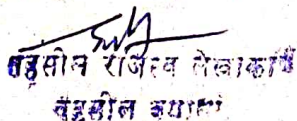 तहसील राजस्व लेखाकार
तहसील बयाना